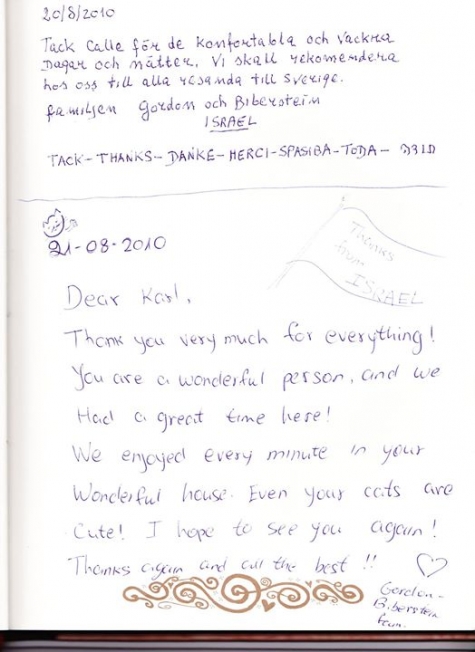 20/8/2010
Tack Calle för de konfortabla och vackra
Dagar och nätter, vi skall rekomendera
hos oss till alla resanda till Sverige.
familjen Gordon och Biberstein
ISRAEL
TACK-THANKS-DANKE-MERCI-SPASIBA-TODA-
21-08-2010
Thanks
from
ISRAEL
Dear Karl,
Thank you very much for everything!
You are a wonderful person, and we
Had a great time here!
We enjoyed every minute in your
Wonderful house. Even your cats are
Cute! I hope to see you again!
Thanks again and all the best !!
Gordon-
Biberstein
fam.